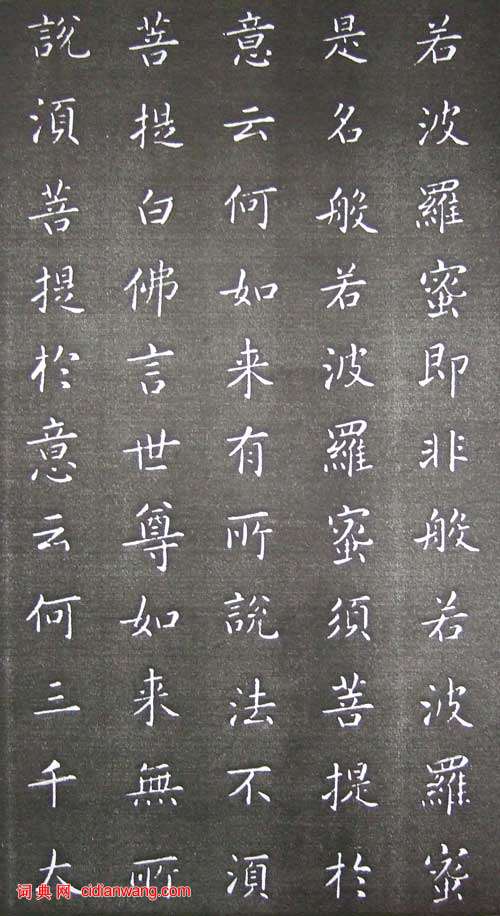 若波羅蜜即非般若波羅蜜
是名般若波羅蜜須菩提於
意云何如来有所說法不須
菩提白佛言世尊如来無所
說須菩提於意云何三千大
词典网 cidianwang.com